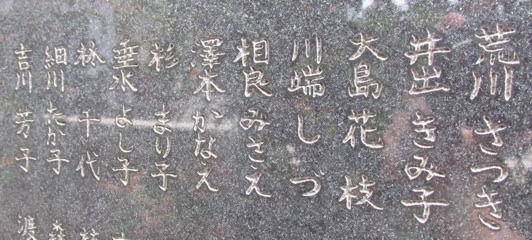 荒川さつき
井出きみ子
大島花枝
川端しづ
相良みさえ
澤本かなえ
杉まり子
垂水よし子
林千代
細川たか子
吉川芳子